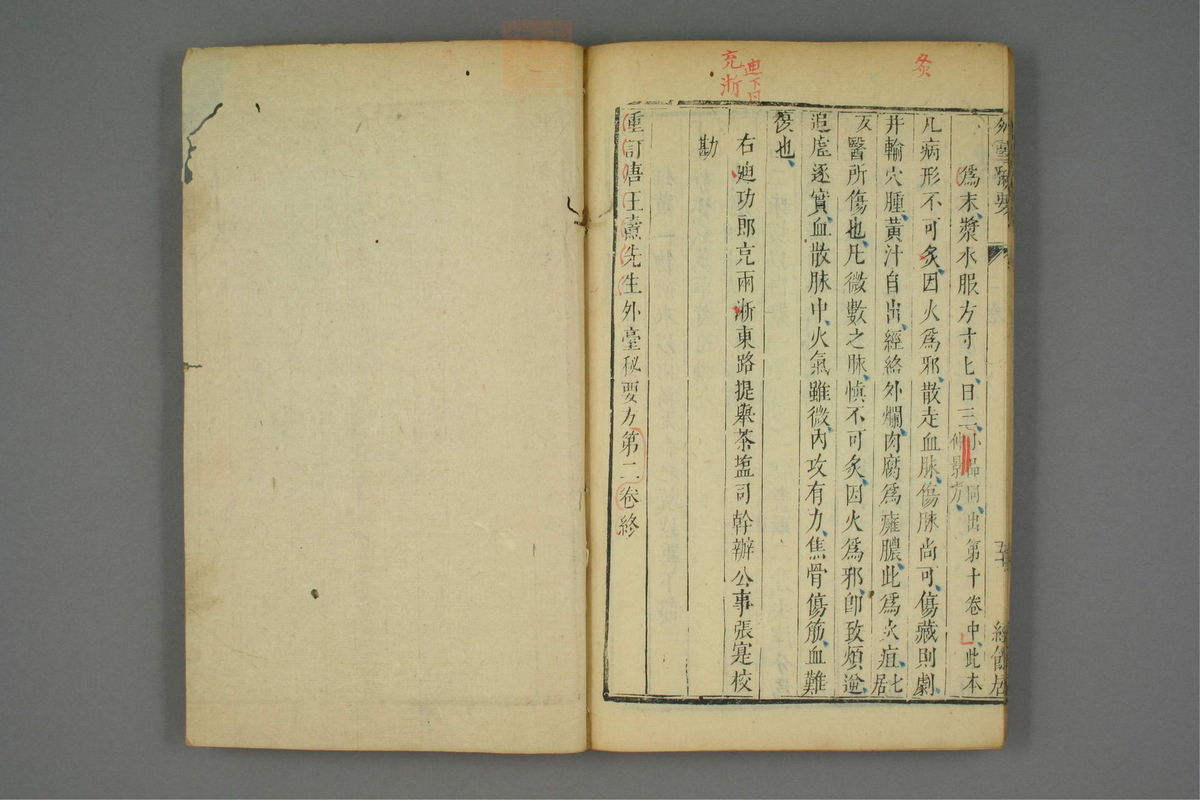 灸
迪下同
充
浙
外臺秘要
經餘居
爲末漿水服方寸匕日三小品同出第十卷中此本
仲景方
凡病形不可灸因火爲邪散走血脉傷脉尚可傷藏則劇
井輸穴腫黃汁自出經絡外爛肉腐爲癰膿此爲火疽
醫所傷也凡微數之脉慎不可灸因火爲邪卽致煩逆
追虛逐實血散脉中火氣雖微內攻有力焦骨傷筋血難
復也
右廸功郎克兩浙東路提舉茶塩司幹辦公事張寔校
勘
重訂唐王燾先生外臺秘要方第二卷終